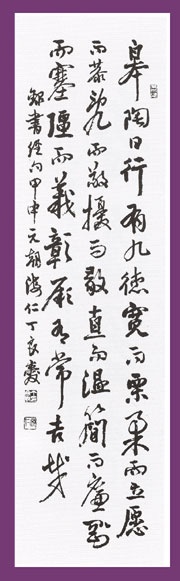 皋陶曰行有九德寬而栗柔而立愿
而恭亂而敬擾而毅直而溫簡而廉剛
而塞彊而義彰厥有常吉哉
錄書經句甲申元朝海仁丁良